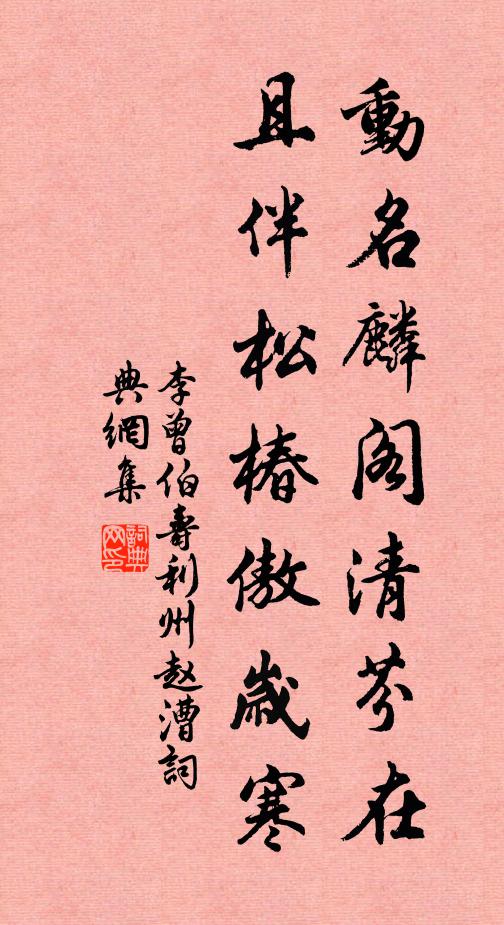 動名麟阁清芬在
且伴松椿傲歲寒
李曾伯壽利州赵漕詞
典網集
詞典网印